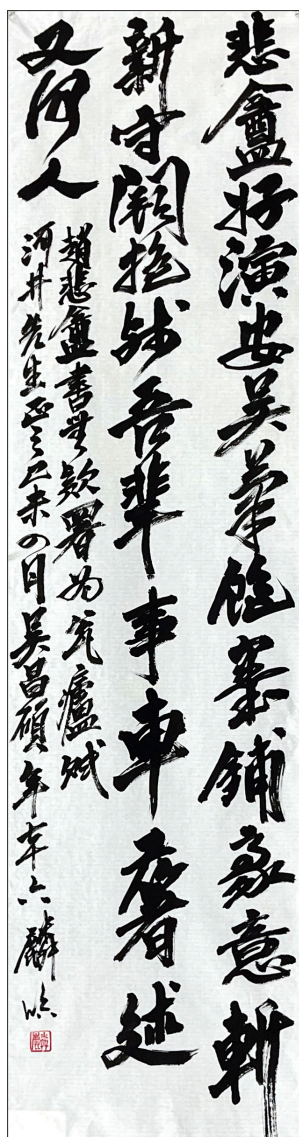 悲盦好演安吳筆飽墨鋪豪意斬
新守闕抱殘吾輩事車著述
又何人
趙悲盦書無款署為瓮廬賦
河井先生正之己未四月吳昌碩年七十六麟臨